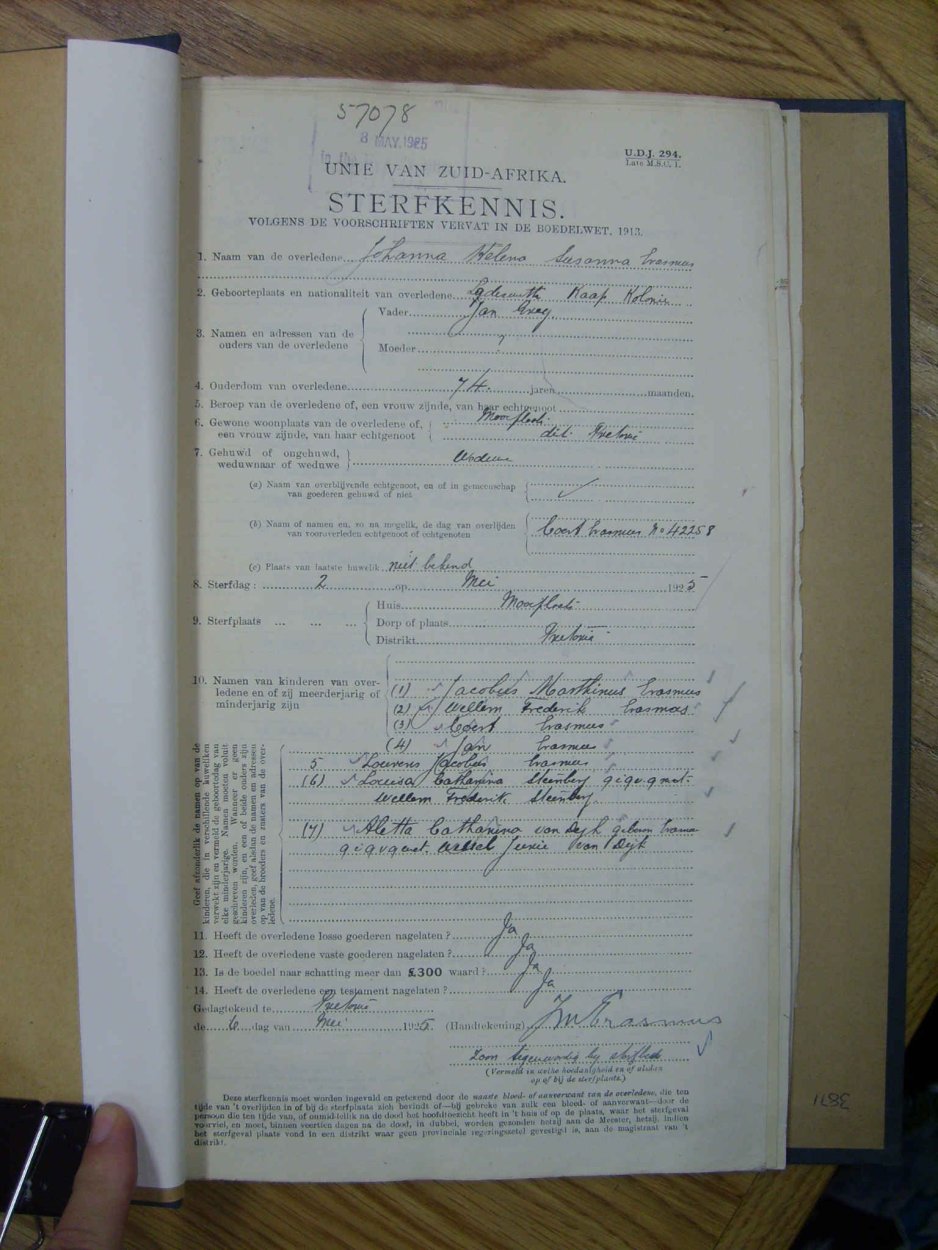 57078
8 MAY. 1925
U.D.J. 294.
Late M.S.C. 1.
UNIE VAN ZUID-AFRIKA.
STERFKENNIS.
VOLGENS DE VOORSCHRIFTEN VERVAT IN DE BOEDELWET, 1913.
1. Naam van de overledene Johanna Helena Susanna Erasmus
2. Geboorteplaats en nationaliteit van overledene Ladismith Kaap Kolonie
3. Namen en adressen van de ouders van de overledene
Vader Jan
Moeder ?
4. Ouderdom van overledene 74 jaren maanden.
5. Beroep van de overledene of, een vrouw zijnde, van haar echtgenoot
6. Gewone woonplaats van de overledene of, Mooiplaats
een vrouw zijnde, van haar echtgenoot dist. Pretoria
7. Gehuwd of ongehuwd, weduwnaar of weduwe Weduwe
(a) Naam van overblijvende echtgenoot, en of in gemeenschap
van goederen gehuwd of niet
(b) Naam of namen en, zo na mogelik, de dag van overlijden
van vooroverleden echtgenoot of echtgenoten Coert Erasmus No 42258
(c) Plaats van laatste huwelik niet bekend
8. Sterfdag: 2 op Mei 1925
9. Sterfplaats ... ... ...
Huis Mooiplaats
Dorp of plaats
Distrikt Pretoria
10. Namen van kinderen van overledene en of zij meerderjarig of minderjarig zijn
(1) Jacobus Marthinus Erasmus
(2) Willem Frederik Erasmus
(3) Coert Erasmus
(4) Jan Erasmus
5 Lourens Jacobus Erasmus
(6) Louisa Catharina Steenberg g.i.g.v.g. met
Willem Frederik Steenberg
(7) Aletta Catharina van Dijk geboren Erasmus
g.i.g.v.g. met. Wessel van Dijk
Geef afzonderlik de namen op van de
kinderen, die in verschillende huweliken
verwekt zijn en vermeld de geboortedag van
elke minderjarige. Namen moeten voluit
geschreven worden. Wanneer er geen
kinderen zijn, en een of beide ouders zijn
overleden, geef alsdan de namen en adressen
op van de broeders en zusters van de overledene.
11. Heeft de overledene losse goederen nagelaten? Ja
12. Heeft de overledene vaste goederen nagelaten? Ja
13. Is de boedel naar schatting meer dan £300 waard? Ja
14. Heeft de overledene een testament nagelaten? Ja
Gedagtekend te Pretoria
de 6 dag van Mei 1925 (Handtekening) J M Erasmus
Zoon tegenwoordig bij sterfbed
(Vermeld in welke hoedanigheid en of alsdan
op of bij de sterfplaats.)
Deze sterfkennis moet worden ingevuld en getekend door de naaste bloed- of aanverwant van de overledene, die ten
tijde van 't overlijden in of bij de sterfplaats zich bevindt of—bij gebreke van zulk een bloed- of aanverwant—door de
persoon die ten tijde van, of onmiddellik na de dood het hoofdtoezicht heeft in 't huis of op de plaats, waar het sterfgeval
voorviel, en moet, binnen veertien dagen na de dood, in dubbel, worden gezonden hetzij aan de Meester, hetzij, indien
het sterfgeval plaats vond in een distrikt waar geen provinciale regeringszetel gevestigd is, aan de magistraat van 't
distrikt.
3871